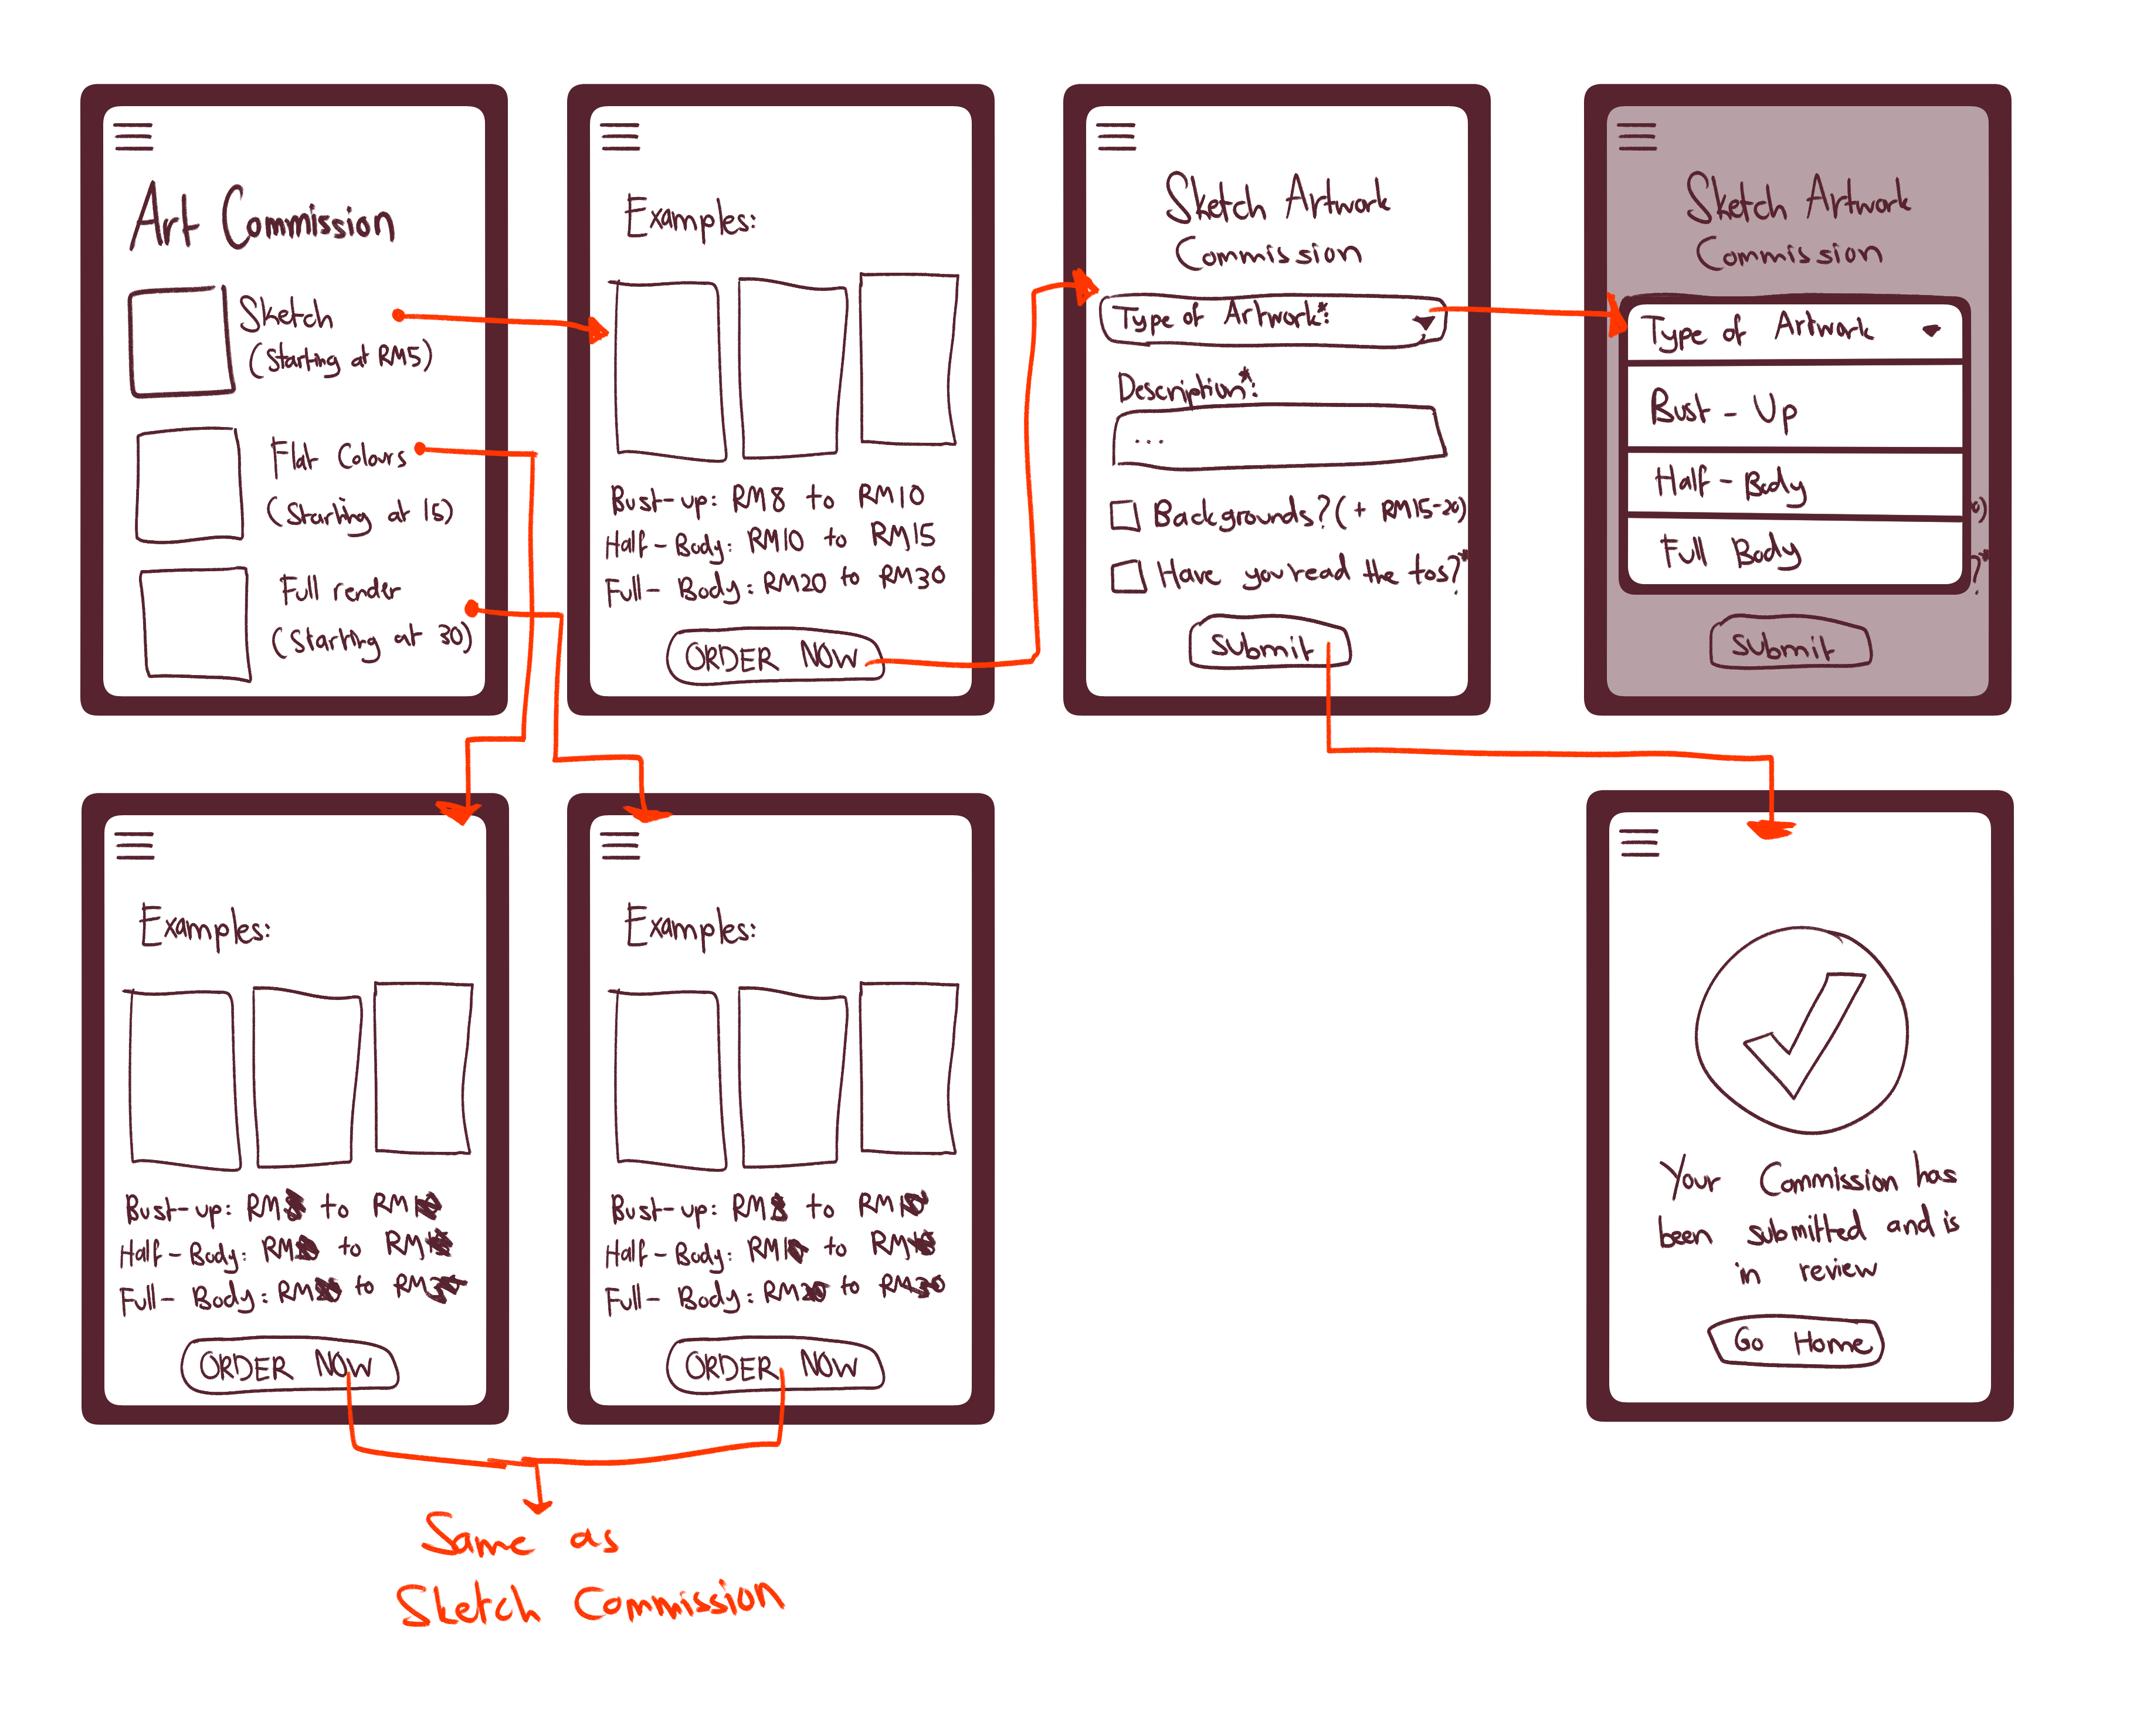 Art Commission
Sketch
(Starting at RM5)
Flat Colours
(Starting at 15)
Full render
(Starting at 30)
Examples:
Bust-up: RM8 to RM10
Half-Body: RM10 to RM15
Full-Body: RM20 to RM30
ORDER NOW
Sketch Artwork
Commission
Type of Artwork*:
Description*:
...
Backgrounds? (+ RM15-20)
Have you read the tos?*
Submit
Sketch Artwork
Commission
Type of Artwork
Bust-Up
Half-Body
Full Body
0)
?*
Submit
Examples:
Bust-up: RM to RM
Half-Body: RM to RM
Full-Body: RM to RM
ORDER NOW
Examples:
Bust-up: RM to RM
Half-Body: RM to RM
Full-Body: RM to RM
ORDER NOW
Your Commission has
been submitted and is
in review
Go Home
Same as
Sketch Commission